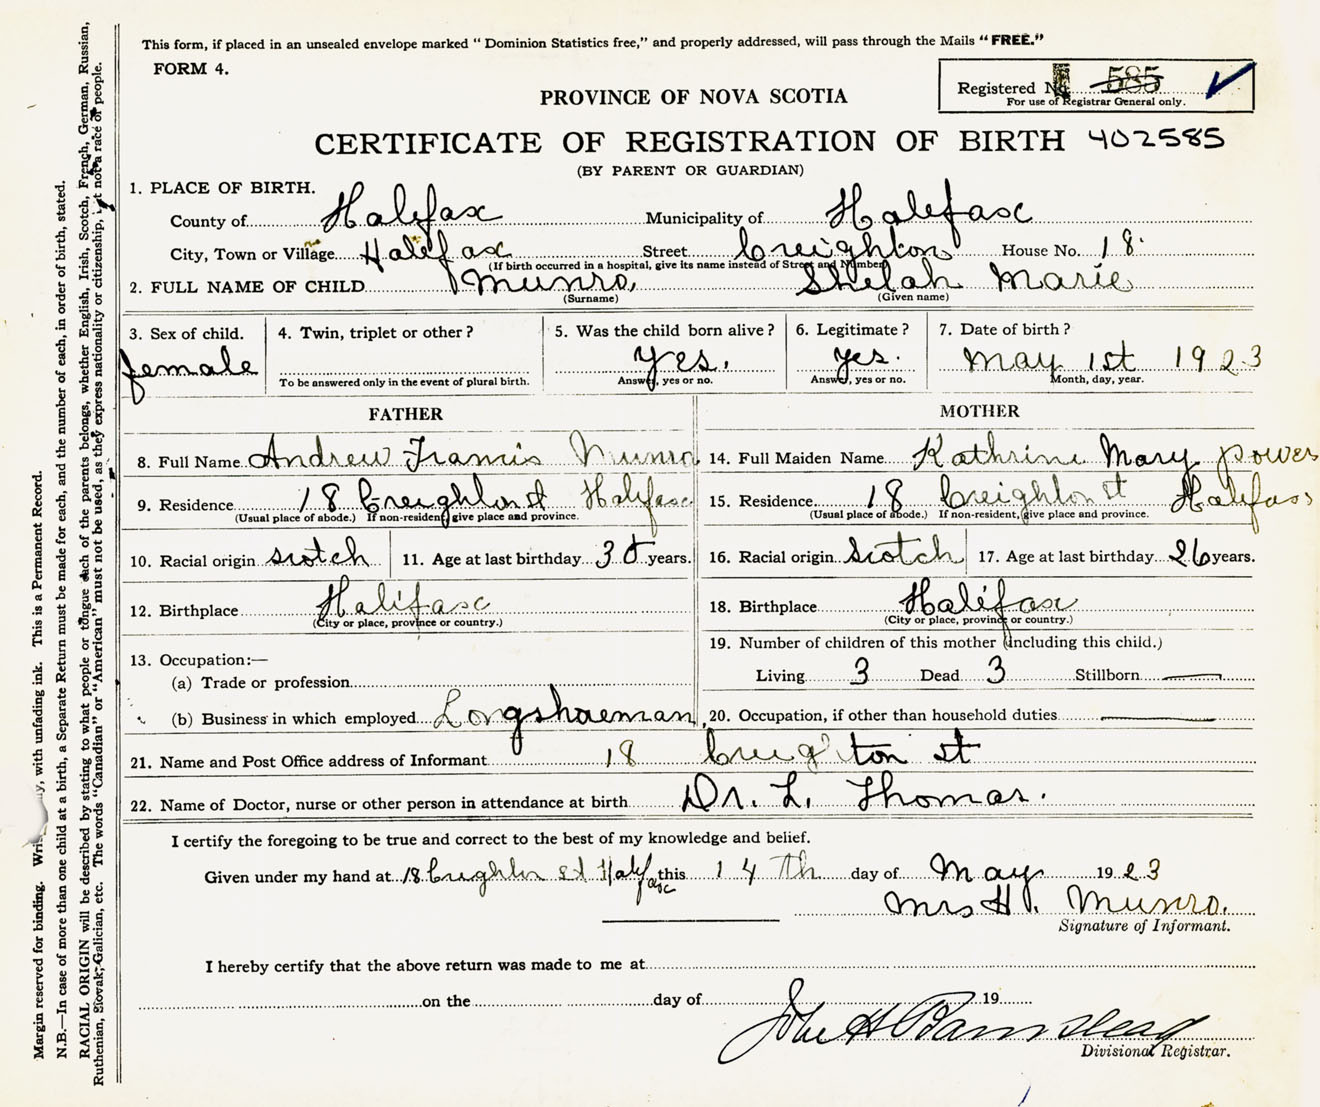 This form, if placed in an unsealed envelope marked "Dominion Statistics free," and properly addressed, will pass through the Mails "FREE."
FORM 4.
Registered No. 585
For use of Registrar General only.
PROVINCE OF NOVA SCOTIA
CERTIFICATE OF REGISTRATION OF BIRTH 402585
(BY PARENT OR GUARDIAN)
1. PLACE OF BIRTH.
County of Halifax Municipality of Halifax
City, Town or Village Halifax Street Creighton House No. 18
(If birth occurred in a hospital, give its name instead of Street and Number)
2. FULL NAME OF CHILD Munro, Shelah Marie
(Surname) (Given name)
3. Sex of child. 4. Twin, triplet or other? 5. Was the child born alive? 6. Legitimate? 7. Date of birth?
female yes, yes. May 1st 1923
To be answered only in the event of plural birth. Answer, yes or no. Answer, yes or no. Month, day, year.
FATHER MOTHER
8. Full Name Andrew Francis Munro 14. Full Maiden Name Kathrine Mary Power
9. Residence 18 Creighton st Halifax 15. Residence 18 Creighton st Halifax
(Usual place of abode.) If non-resident, give place and province. (Usual place of abode.) If non-resident, give place and province.
10. Racial origin scotch 11. Age at last birthday years. 16. Racial origin Scotch 17. Age at last birthday 26 years.
12. Birthplace Halifax 18. Birthplace Halifax
(City or place, province or country.) (City or place, province or country.)
19. Number of children of this mother (including this child.)
13. Occupation:—
(a) Trade or profession Living 3 Dead 3 Stillborn —
(b) Business in which employed Longshoeman 20. Occupation, if other than household duties —
21. Name and Post Office address of Informant 18 Creighton st
22. Name of Doctor, nurse or other person in attendance at birth Dr. L. Thomas.
I certify the foregoing to be true and correct to the best of my knowledge and belief.
Given under my hand at 18 Creighton st Halifax this 14th day of May 1923
Mrs H. Munro.
Signature of Informant.
I hereby certify that the above return was made to me at
on the day of 19
John H Barnstead
Divisional Registrar.
Margin reserved for binding. with unfading ink. This is a Permanent Record.
N.B.—In case of more than one child at a birth, a Separate Return must be made for each, and the number of each, in order of birth, stated.
RACIAL ORIGIN will be described by stating to what people or tongue each of the parents belongs, whether English, Irish, Scotch, French, German, Russian,
Ruthenian, Slovak, Galician, etc. The words "Canadian" or "American" must not be used, as they express nationality or citizenship, but not a race of people.